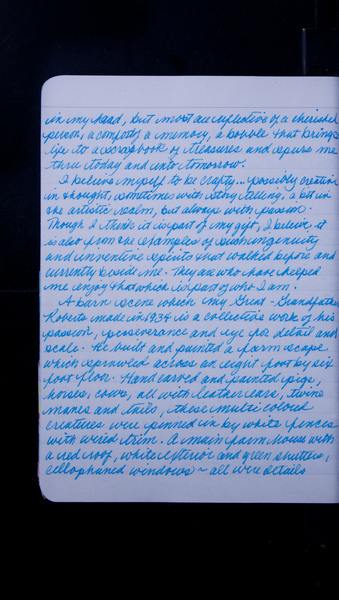 in my head, but most are reflective of a cherished
person, a comfort, a memory, a bobble that brings
life to a scrapbook of treasures and spurs me
thru today and into tomorrow.
I believe myself to be crafty... possibly creative
in thought, sometimes with story telling, a bit in
the artistic realm, but always with passion.
Though I think it is part of my gift, I believe it
is also from the examples of such ingenuity
and inventive spirits that walked before and
currently beside me. They are who have helped
me enjoy that which is part of who I am.
A barn scene which my Great-Grandfather
Roberts made in 1934 is a collective work of his
passion, perseverance and eye for detail and
scale. He built and painted a farm scape
which sprawled across an eight foot by six
foot floor. Hand carved and painted pigs,
horses, cows, all with leather ears, twine
manes and tails, these multi colored
creatures were penned in by white fences
with wired trim. A main farm house with
a red roof, white exterior and green shutters,
cellophaned windows ~ all were details